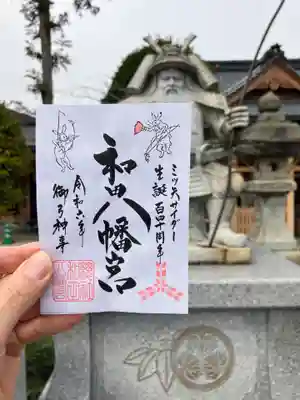 ミツ矢サイダー
生誕百四十周年
和田八幡宮
令和六年
御弓神事